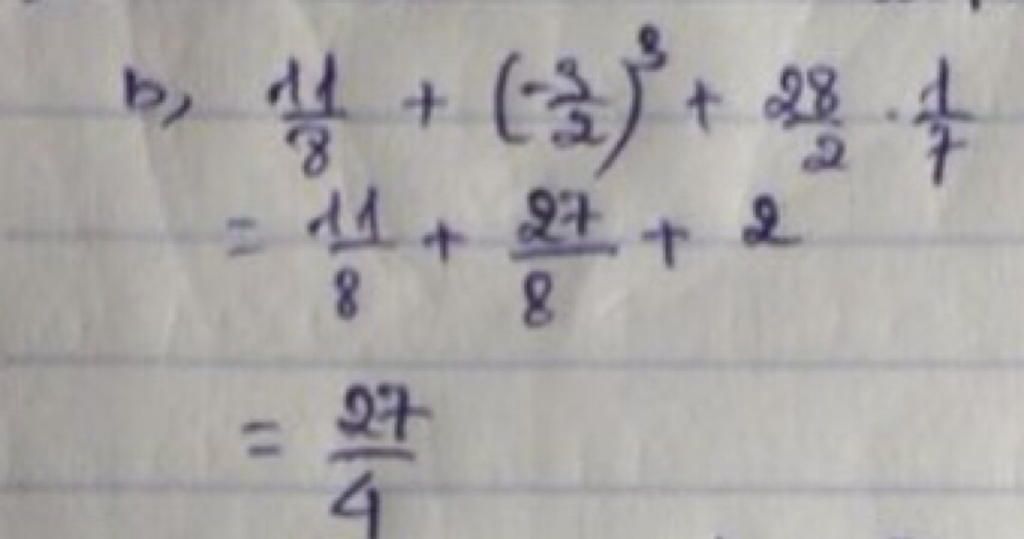 b, 11/8 + (-3/2)^3 + 28/2 . 1/7
= 11/8 + 27/8 + 2
= 27/4